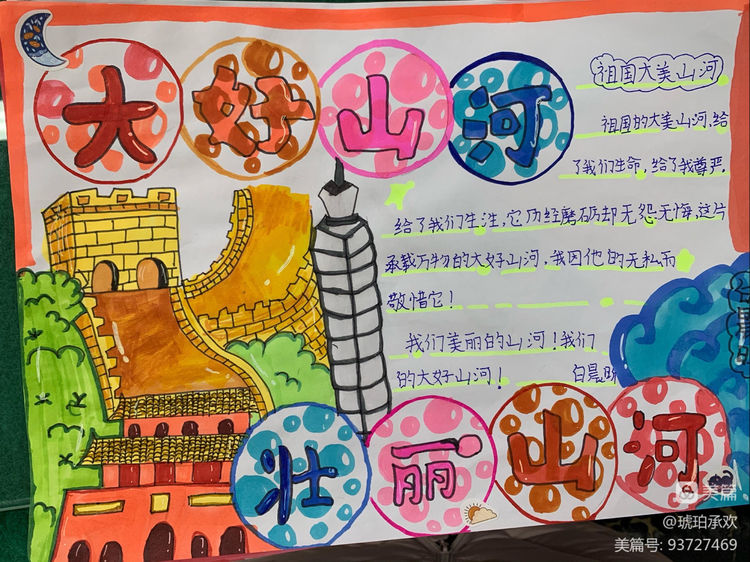 大好山河
祖国大美山河
祖国的大美山河,给
了我们生命,给了我尊严,
给了我们生活,它历经磨砺却无怨无悔,这片
承载万物的大好山河,我因他的无私而
敬惜它!
我们美丽的山河!我们
的大好山河!
白晨
壮丽山河
美篇
@琥珀承欢
美篇号: 93727469